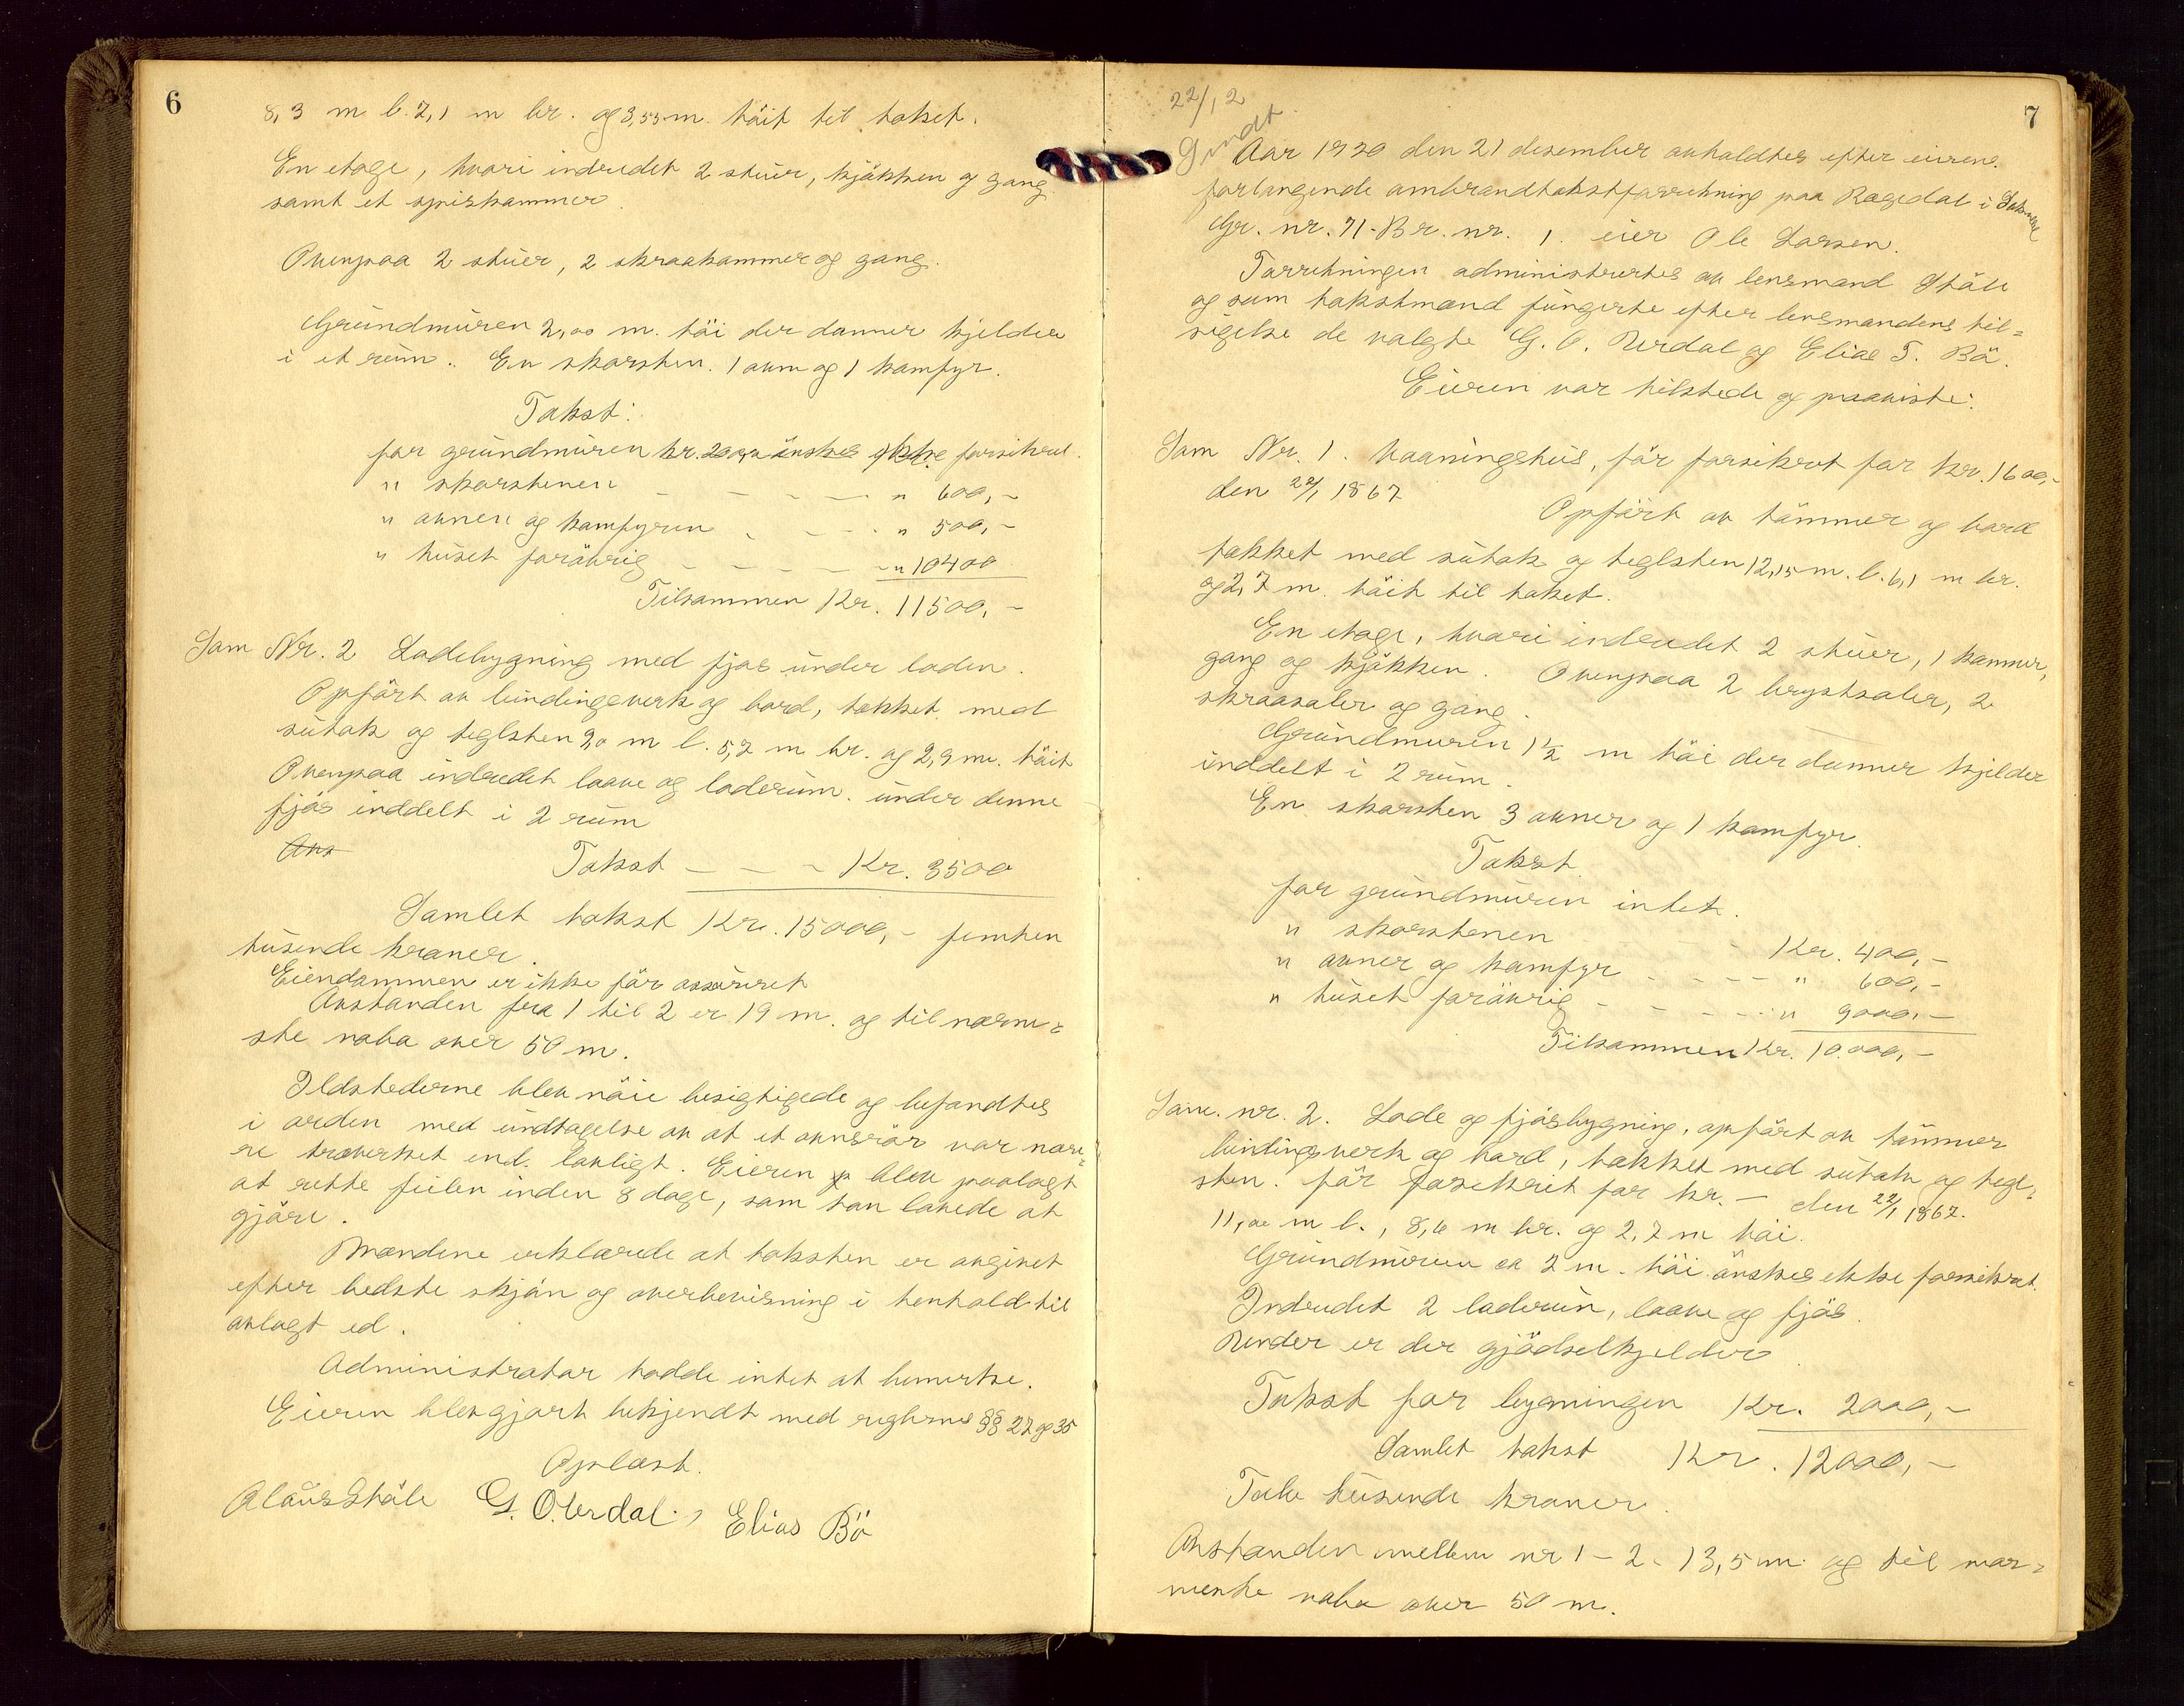 6
8,3 m l. 7,1 m br. og 3,55 m. höit til taket.
En etage, hvori indredet 2 stuer, kjökken og gang
samt et spiskammer.
Ovenpaa 2 stuer, 2 skraakammer og gang.
Grundmuren 2,00 m. höi der danner kjelder
i et rum. En skorsten. 1 ovn og 1 komfyr.
Takst:
for grundmuren önskes ikke forsikret.
" skorstenen - - - - " 600,-
" ovnen og komfyren - - - " 500,-
" huset forövrig - - - - - " 10400
Tilsammen Kr. 11500,-
Som Nr. 2 Ladebygning med fjös under laden.
Opfört av bindingsverk og bord, tækket med
sutak og teglsten 9,0 m l. 5,7 m br. og 2,9 m. höit
Ovenpaa indredet laave og laderum. under denne
fjös inddelt i 2 rum
Avs
Takst - - - Kr. 3500
Samlet takst Kr. 15000,- femten
tusende kroner.
Eiendommen er ikke för assureret
Avstanden fra 1 til 2 er 19 m. og til nærme=
ste nabo over 50 m.
Ildstederne blev nöie besigtigede og befandtes
i orden med undtagelse av at et ovnsrör var nær=
re træverket end lovligt. Eieren blev paalagt
at rette feilen inden 8 dage, som han lovede at
gjöre.
Mændene erklærede at taksten er avgivet
efter bedste skjön og overbevisning i henhold til
avlagt ed.
Administrator hadde intet at bemerke.
Eieren blev gjort bekjendt med reglernes §§ 27 og 35
Oplæst.
Olaus Ståle G. O. Verdal., Elias Bö
7
22/12
Aar 1920 den 21 desember avholdtes efter eierens
forlangende ombrandtakstforretning paa Rægedal i
Gr. nr. 71 - Br. nr. 1. eier Ole Larsen.
Forretningen administrertes av lensmand Ståle
og som takstmænd fungerte efter lensmandens til=
sigelse de valgte G. O. Verdal og Elias T. Bö.
Eieren var tilstede og paaviste:
Som Nr. 1. Vaaningshus, för forsikret for kr. 1600,-
den 22/1 1867
Opfört av tömmer og bord
tækket med sutak og teglsten 12,15 m. l. 6,1 m br.
og 2,7 m. höit til taket.
En etage, hvori indredet 2 stuer, 1 kammer,
gang og kjökken. Ovenpaa 2 brystsaler, 2
skraasaler og gang.
Grundmuren 1 1/2 m höi der danner kjelder
inddelt i 2 rum.
En skorsten 3 ovner og 1 komfyr.
Takst.
for grundmuren intet.
" skorstenen - - Kr. 400,-
" ovner og komfyr - - - - " 600,-
" huset forövrig - - - - - " 9000,-
Tilsammen Kr. 10.000,-
Som. nr. 2. Lade og fjösbygning, opfört av tömmer
bindingsverk og bord, tækket med sutak og tegl=
sten. för forsikret for kr. - den 22/1 1867.
11,00 m l., 8,6 m br. og 2,7 m höi.
Grundmuren av 2 m. höi önskes ikke forsikret.
Indredet 2 laderum, laave og fjös.
Under er der gjödselkjelder.
Takst for bygningen Kr. 2000,-
Samlet takst Kr. 12000,-
Tolv tusende kroner.
Avstanden mellem nr 1 - 2 - 13,5 m og til nær=
meste nabo over 50 m.